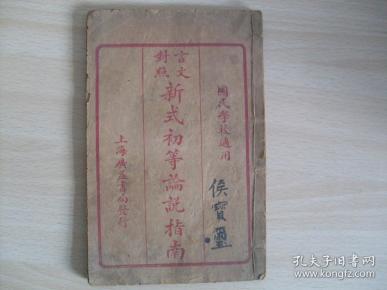 國民學校適用
言文
對照
新式初等論說指南
上海廣益書局發行
侯寶璽
孔夫子旧书网